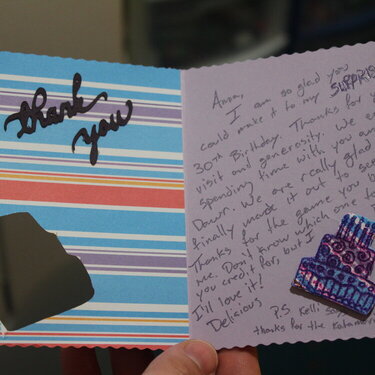 thank
you
Anna,
I am so glad you
could make it to my SURPRIS
30th Birthday. Thanks for
visit and generosity. We en
spending time with you an
Dawn. We are really glad
finally made it out to se
Thanks for the game you
me. Don't know which one to
you credit for, but I
I'll love it!
Delicious
P.S. Kelli say
thanks for the Katamari